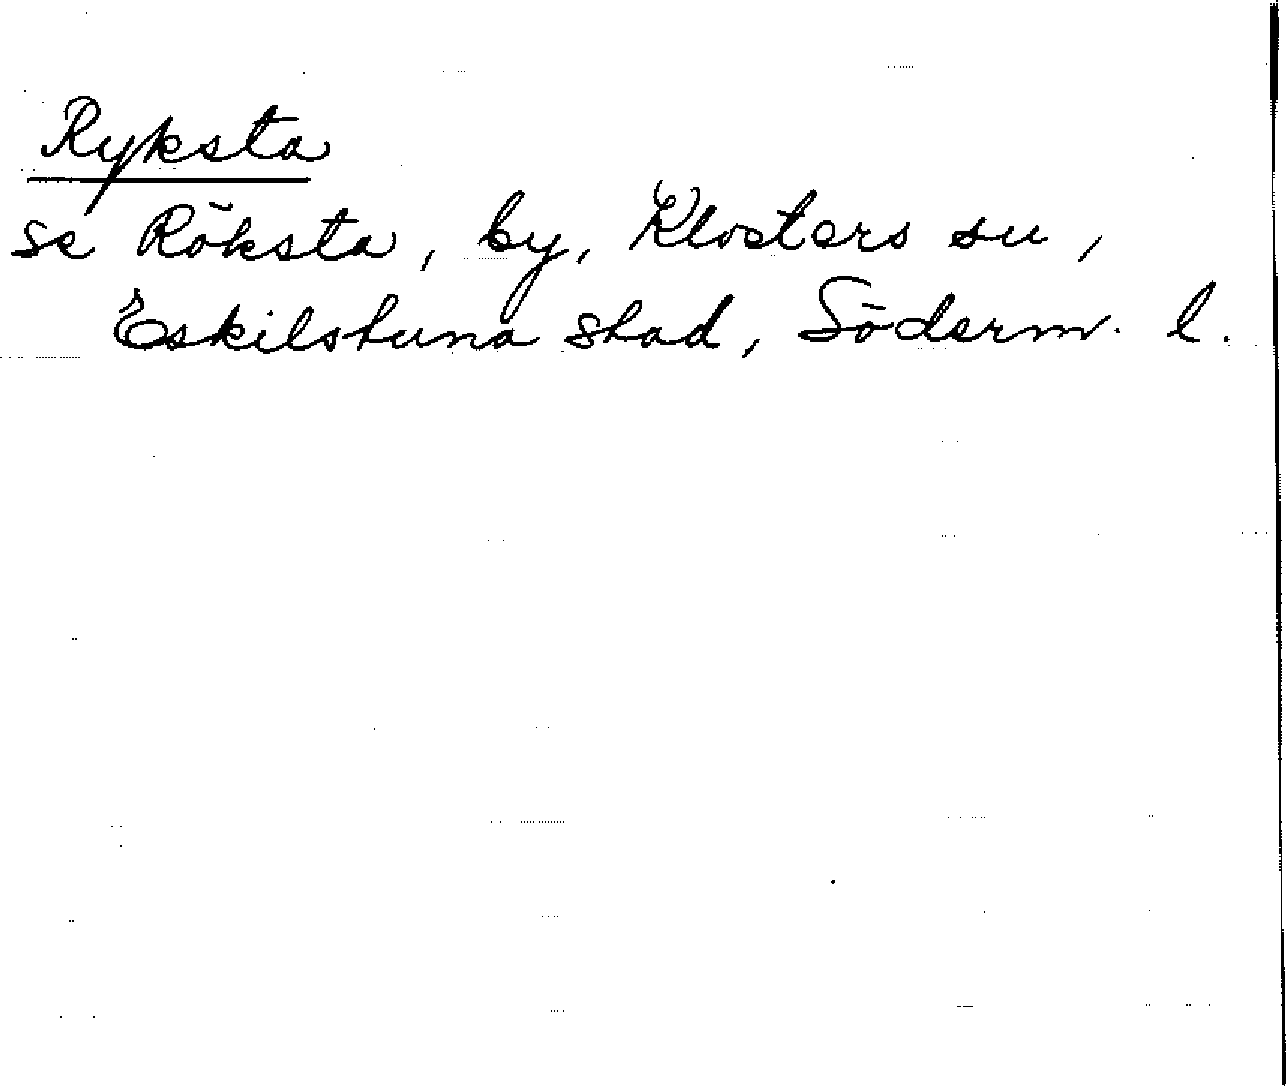 Ryksta
se Röksta, by, Klosters sn,
Eskilstuna stad, Söderm. l.